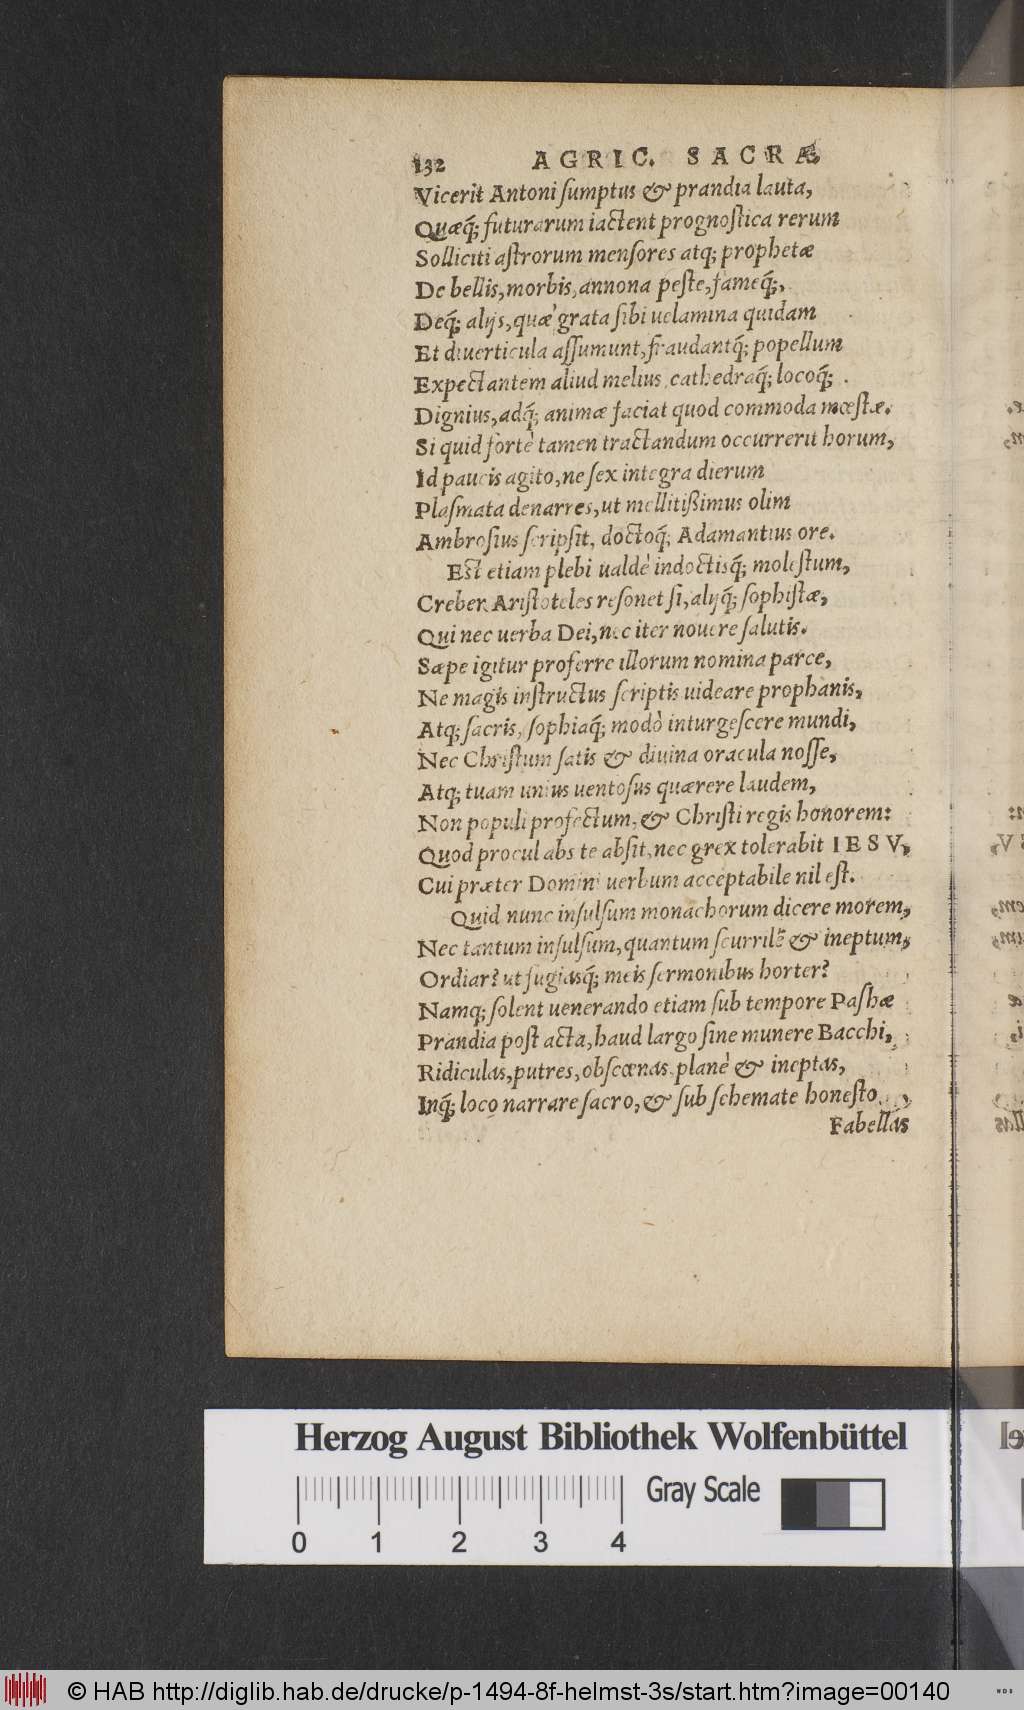 132 AGRIC. SACRÆ
Vicerit Antoni ſumptus & prandia lauta,
Quæq́; futurarum iactent prognoſtica rerum
Solliciti aſtrorum menſores atq; prophetæ
De bellis, morbis, annona peſte, fameq́;,
Deq́; alijs, quæ̀ grata ſibi uelamina quidam
Et diuerticula aſſumunt, fraudantq́; popellum
Expectantem aliud melius, cathedraq́; locoq́;
Dignius, adq́; animæ faciat quod commoda mœſtæ.
Si quid fortè tamen tractandum occurrerit horum,
Id paucis agito, ne ſex integra dierum
Plaſmata denarres, ut mellitißimus olim
Ambroſius ſcripſit, doctoq́; Adamantius ore.
Eſt etiam plebi ualdè indoctisq́; moleſtum,
Creber Ariſtoteles reſonet ſi, alijq́; ſophiſtæ,
Qui nec uerba Dei, nec iter nouere ſalutis.
Sæpe igitur proferre illorum nomina parce,
Ne magis inſtructus ſcriptis uideare prophanis,
Atq; ſacris, ſophiaq́; modò inturgeſcere mundi,
Nec Chriſtum ſatis & diuina oracula noſſe,
Atq; tuam unius uentoſus quærere laudem,
Non populi profectum, & Chriſti regis honorem:
Quod procul abs te abſit, nec grex tolerabit IESV,
Cui præter Domini uerbum acceptabile nil eſt.
Quid nunc inſulſum monachorum dicere morem,
Nec tantum inſulſum, quantum ſcurrilẽ & ineptum,
Ordiar? ut fugiasq́; meis ſermonibus horter?
Namq; ſolent uenerando etiam ſub tempore Paſhæ
Prandia poſt acta, haud largo ſine munere Bacchi,
Ridiculas, putres, obſcœnas planè & ineptas,
Inq́; loco narrare ſacro, & ſub ſchemate honeſto
Fabellas
Herzog August Bibliothek Wolfenbüttel
Gray Scale
0 1 2 3 4
© HAB http://diglib.hab.de/drucke/p-1494-8f-helmst-3s/start.htm?image=00140